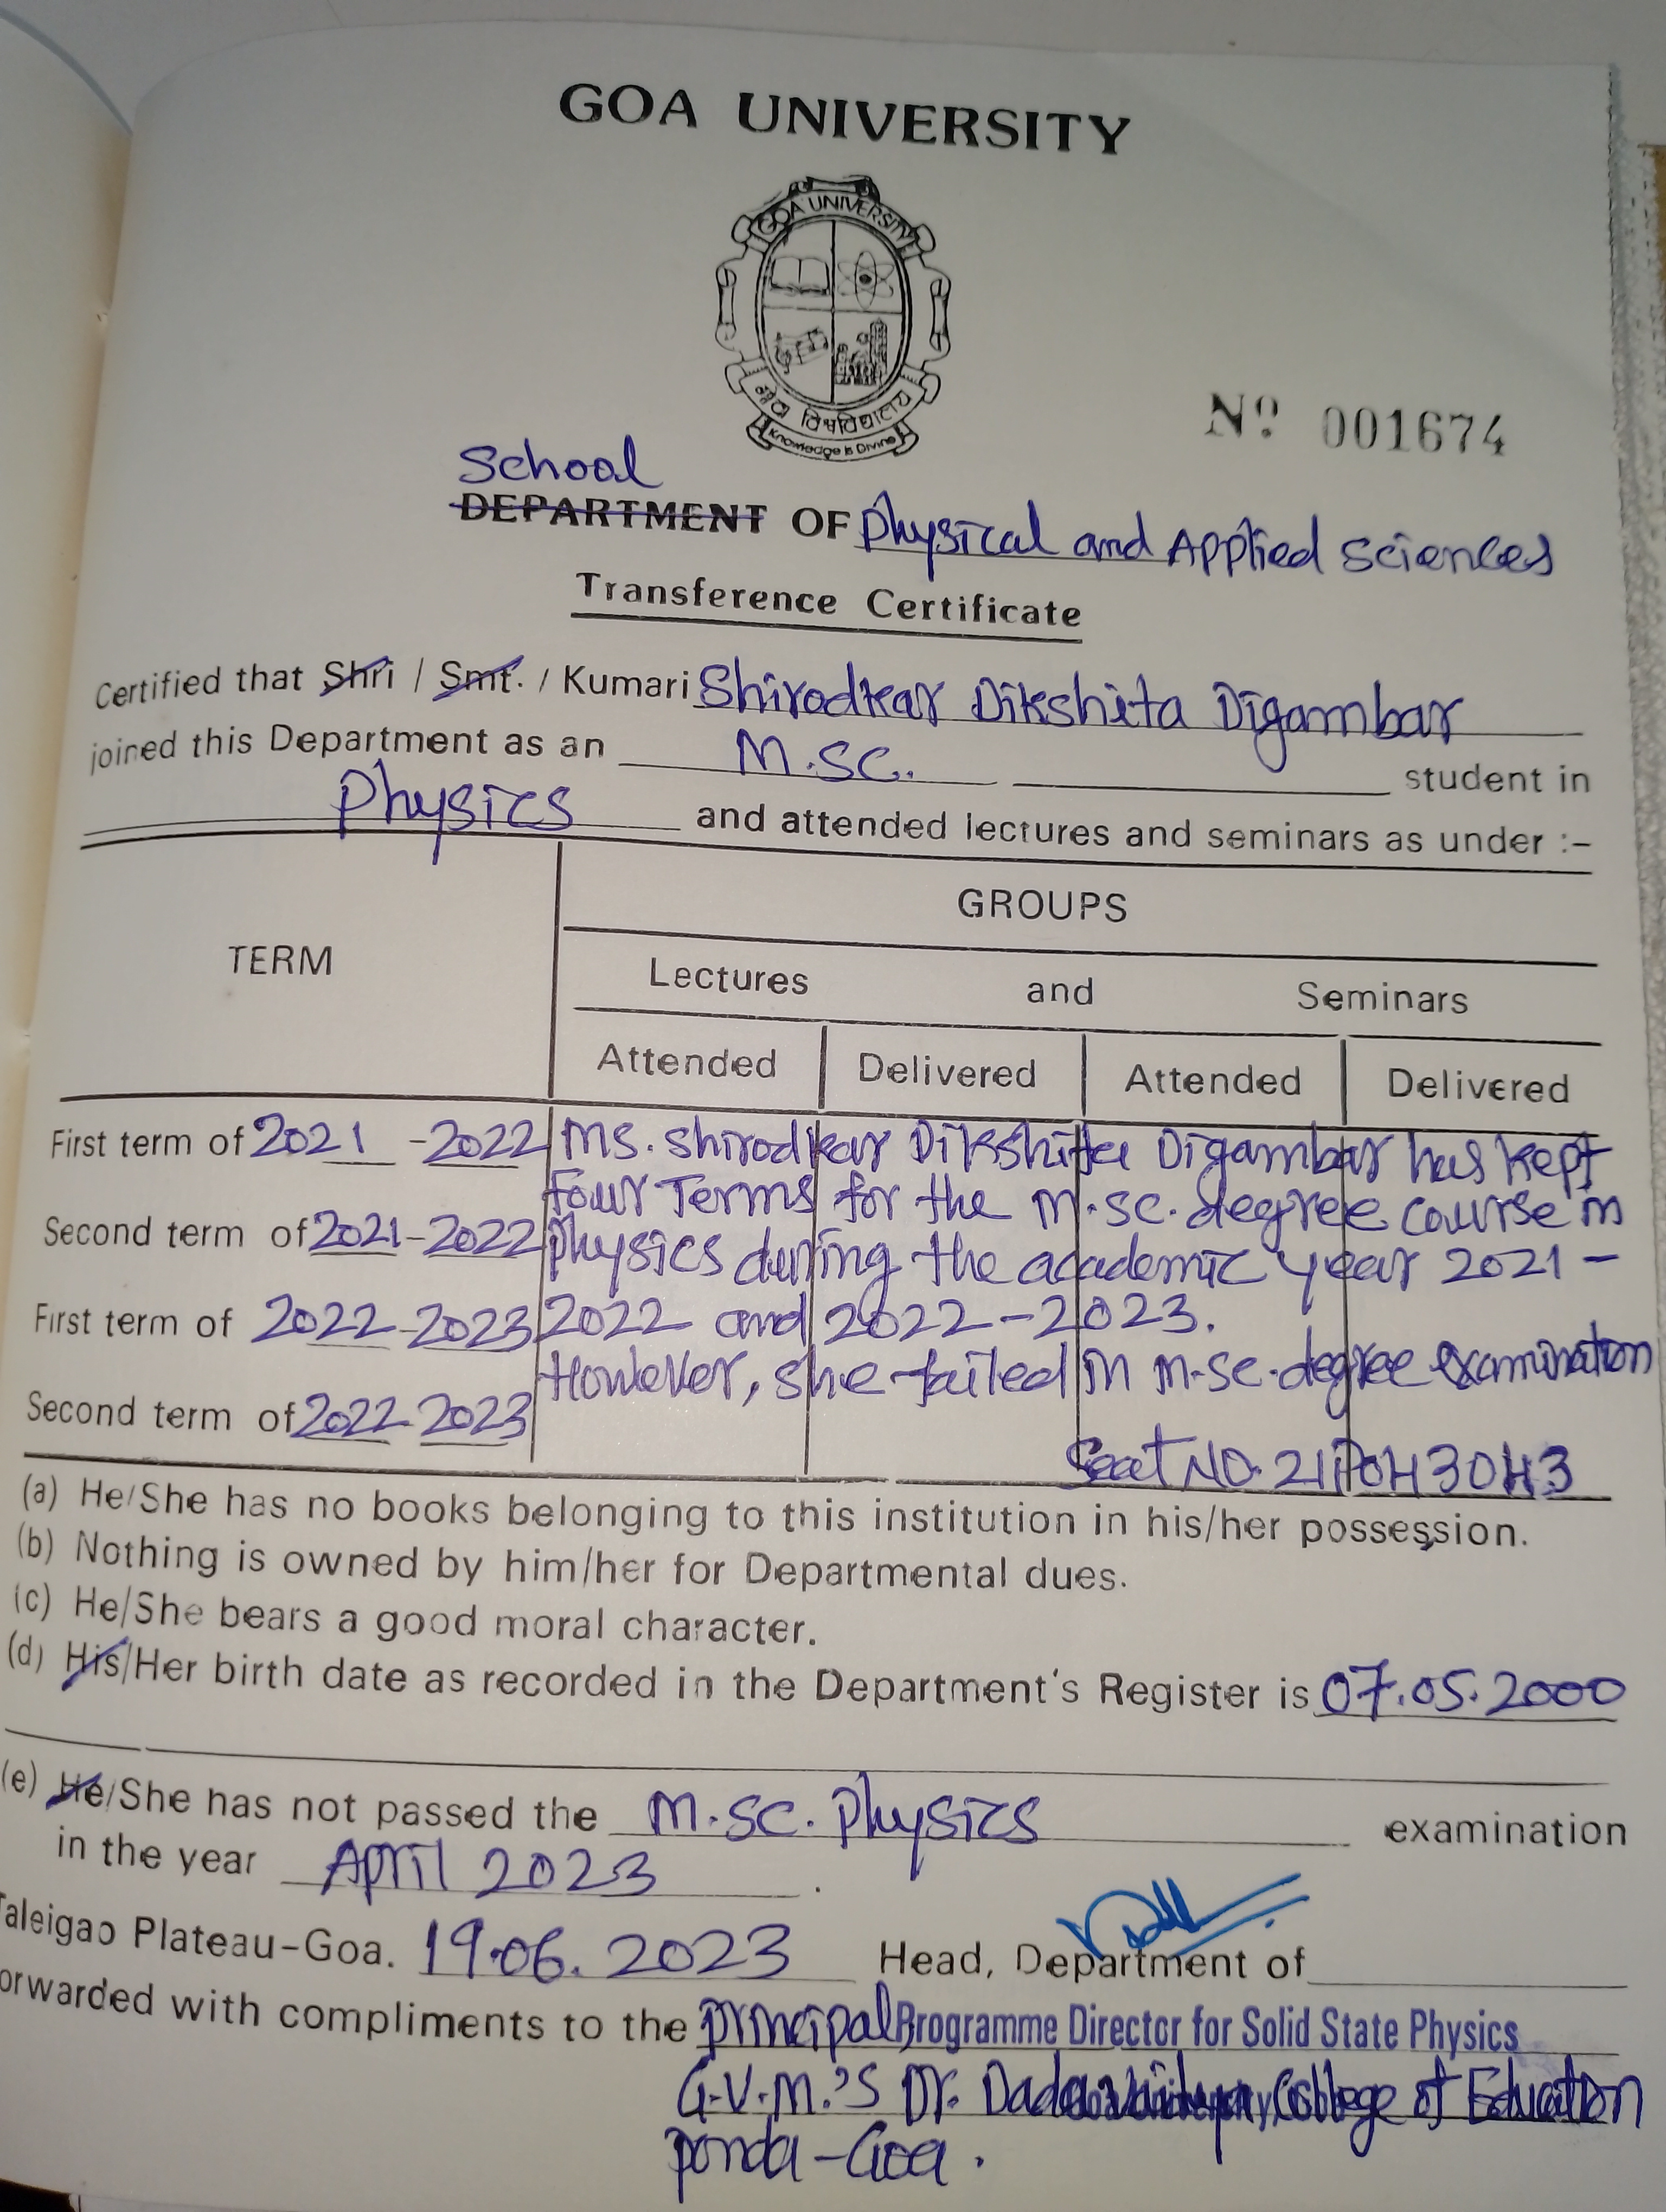 GOA UNIVERSITY
GOA UNIVERSITY
गोंय विश्वविद्यालय
Knowledge is Divine
Nº 001674
School
DEPARTMENT OF Physical and Applied Sciences
Transference Certificate
Certified that Shri / Smt. / Kumari Shirodkar Dikshita Digambar
joined this Department as an M.Sc. student in
Physics and attended lectures and seminars as under :-
TERM
GROUPS
Lectures and Seminars
Attended Delivered Attended Delivered
First term of 2021 - 2022 Ms. Shirodkar Dikshita Digambar has kept
four Terms for the M.Sc. degree course in
Second term of 2021-2022 Physics during the academic year 2021 -
First term of 2022-2023 2022 and 2022-2023.
However, she failed in M.Sc. degree examination
Second term of 2022-2023
Seat No. 21P0H30H3
(a) He/She has no books belonging to this institution in his/her possession.
(b) Nothing is owned by him/her for Departmental dues.
(c) He/She bears a good moral character.
(d) His/Her birth date as recorded in the Department's Register is 07.05.2000
(e) He/She has not passed the M.Sc. Physics examination
in the year April 2023 .
Taleigao Plateau-Goa. 19.06.2023 Head, Department of
orwarded with compliments to the Principal, Programme Director for Solid State Physics
G.V.M.'S Dr. Dada Vaidya College of Education
Ponda-Goa.